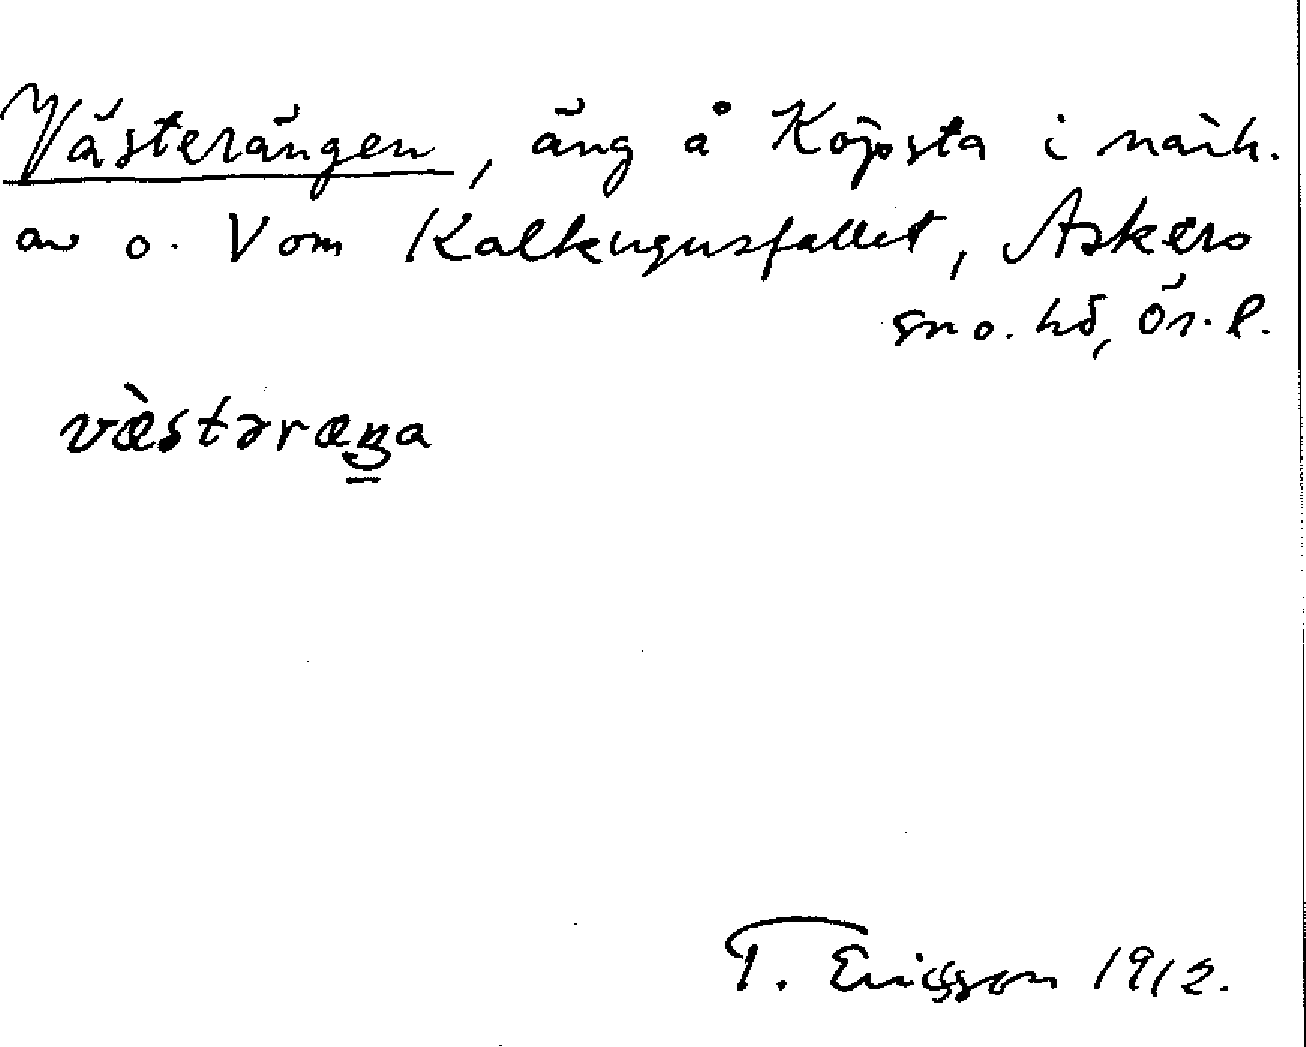 Västerängen, äng å Köpsta i närh.
av o. V om Kalkugnsfallet, Askers
sn o. hd, Ör. l.
væ̀stəræŋa
T. Ericsson 1912.